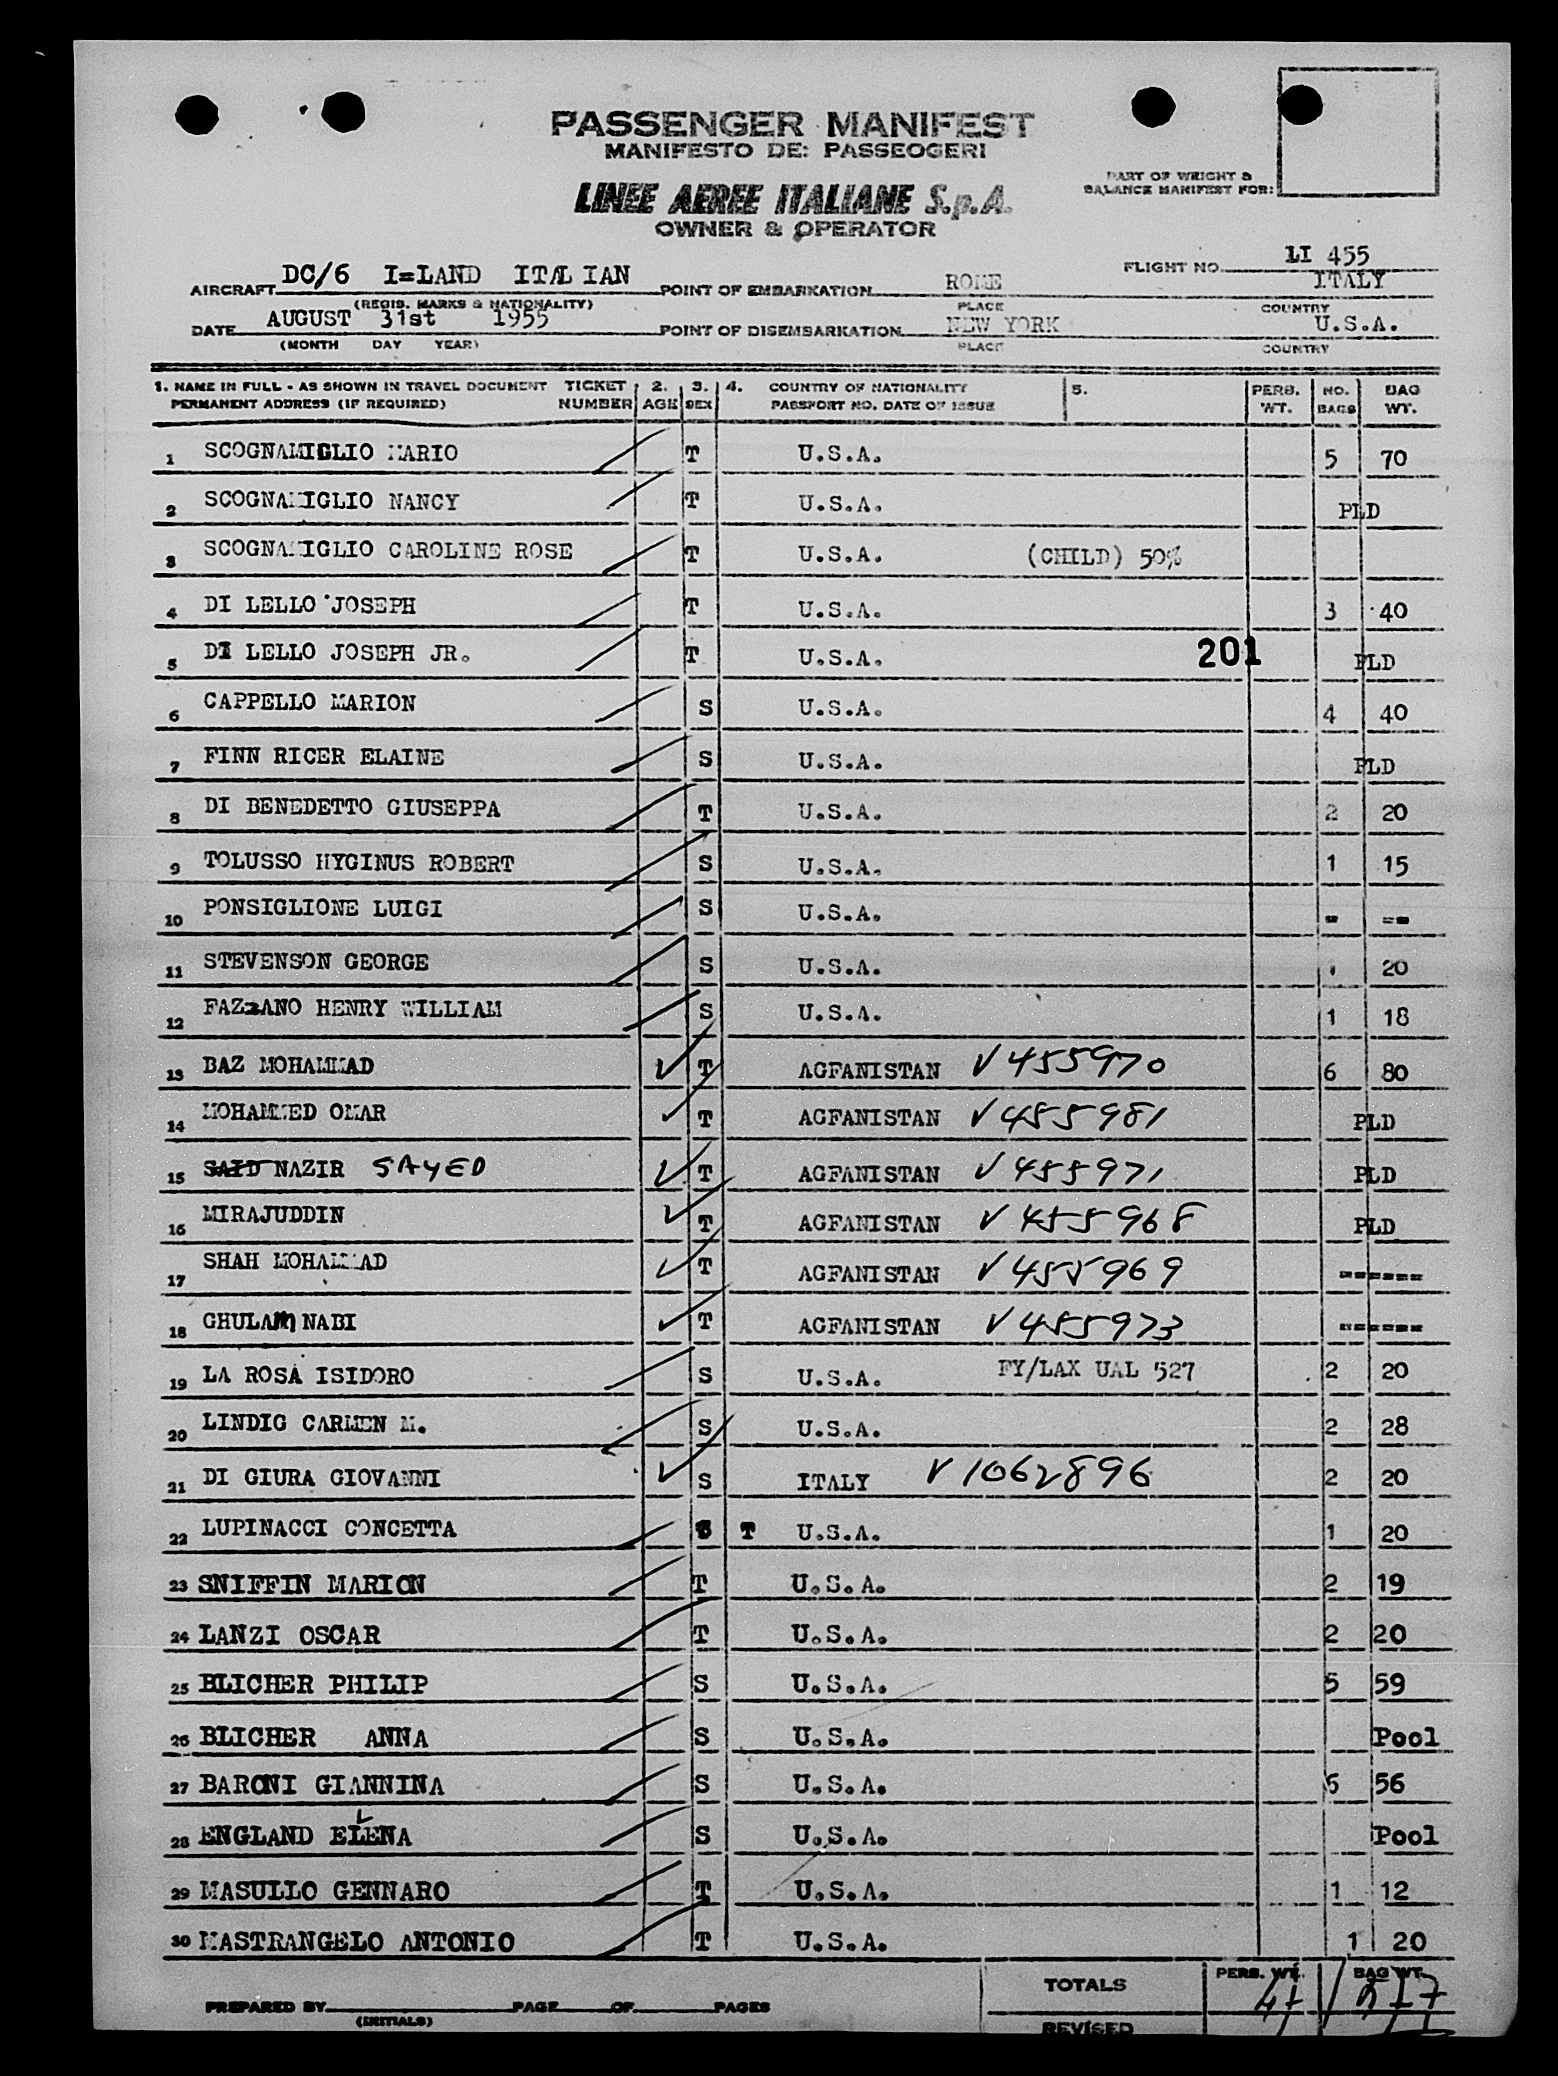 PASSENGER MANIFEST
MANIFESTO DE: PASSEOGERI
PART OF WEIGHT &
BALANCE MANIFEST FOR:
LINEE AEREE ITALIANE S.p.A.
OWNER & OPERATOR
FLIGHT NO. LI 455
AIRCRAFT DC/6 I=LAND ITALIAN POINT OF EMBARKATION ROME ITALY
(REGIS. MARKS & NATIONALITY) PLACE COUNTRY
DATE AUGUST 31st 1955 POINT OF DISEMBARKATION NEW YORK U.S.A.
(MONTH DAY YEAR) PLACE COUNTRY
1. NAME IN FULL - AS SHOWN IN TRAVEL DOCUMENT TICKET 2. 3. 4. COUNTRY OF NATIONALITY 5. PERS. NO. BAG
PERMANENT ADDRESS (IF REQUIRED) NUMBER AGE SEX PASSPORT NO. DATE OF ISSUE WT. BAGS WT.
1 SCOGNAMIGLIO MARIO T U.S.A. 5 70
2 SCOGNAMIGLIO NANCY T U.S.A. PLD
3 SCOGNAMIGLIO CAROLINE ROSE T U.S.A. (CHILD) 50%
4 DI LELLO JOSEPH T U.S.A. 3 40
5 DI LELLO JOSEPH JR. T U.S.A. 201 PLD
6 CAPPELLO MARION S U.S.A. 4 40
7 FINN RICER ELAINE S U.S.A. PLD
8 DI BENEDETTO GIUSEPPA T U.S.A. 2 20
9 TOLUSSO HYGINUS ROBERT S U.S.A. 1 15
10 PONSIGLIONE LUIGI S U.S.A. - --
11 STEVENSON GEORGE S U.S.A. 1 20
12 FAZZANO HENRY WILLIAM S U.S.A. 1 18
13 BAZ MOHAMMAD T AGFANISTAN V 455970 6 80
14 MOHAMMED OMAR T AGFANISTAN V 455981 PLD
15 SAID NAZIR SAYED T AGFANISTAN V 455971 PLD
16 MIRAJUDDIN T AGFANISTAN V 455968 PLD
17 SHAH MOHAMMAD T AGFANISTAN V 455969 ------
18 GHULAM NABI T AGFANISTAN V 455973 ------
19 LA ROSA ISIDORO S U.S.A. FY/LAX UAL 527 2 20
20 LINDIG CARMEN M. S U.S.A. 2 28
21 DI GIURA GIOVANNI S ITALY V 1062896 2 20
22 LUPINACCI CONCETTA S T U.S.A. 1 20
23 SNIFFIN MARION T U.S.A. 2 19
24 LANZI OSCAR T U.S.A. 2 20
25 BLICHER PHILIP S U.S.A. 5 59
26 BLICHER ANNA S U.S.A. Pool
27 BARONI GIANNINA S U.S.A. 6 56
28 ENGLAND ELENA S U.S.A. Pool
29 MASULLO GENNARO T U.S.A. 1 12
30 MASTRANGELO ANTONIO T U.S.A. 1 20
TOTALS PERS. WT. BAG WT.
PREPARED BY PAGE OF PAGES
(INITIALS)
REVISED